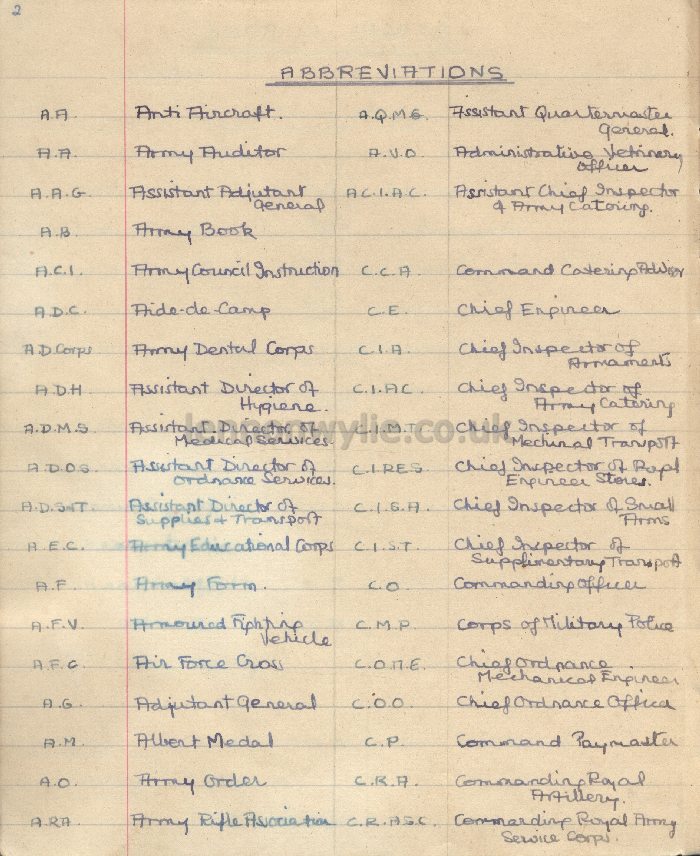 2
ABBREVIATIONS
A.A. Anti Aircraft. A.Q.M.G. Assistant Quartermaster
General.
A.A. Army Auditor A.V.O. Administrative Vetrinery
Officer
A.A.G. Assistant Adjutant A.C.I.A.C. Assistant Chief Inspector
General of Army Catering.
A.B Army Book
A.C.I. Army Council Instruction C.C.A. Command Catering Advisor
A.D.C. Aide-de-Camp C.E. Chief Engineer
A.D.Corps Army Dental Corps C.I.A. Chief Inspector of
Armaments
A.D.H Assistant Director of C.I.AC. Chief Inspector of
Hygiene. Army Catering
A.D.M.S. Assistant Director of C.I.M.T. Chief Inspector of
Medical Services. Mechinal Transport
A.D.O.S. Assistant Director of C.I.R.E.S. Chief Inspector of Royal
Ordnance Services. Engineer Stores.
A.D.S&T. Assistant Director of C.I.S.A. Chief Inspector of Small
Supplies & Transport Arms
A.E.C. Army Educational Corps C.I.S.T. Chief Inspector of
Supplimentary Transport
A.F. Army Form. C.O. Commanding Officer
A.F.V. Armoured Fighting C.M.P. Corps of Military Police
Vehicle
A.F.C. Air Force Cross C.O.M.E. Chief Ordnance
Mechanical Engineer
A.G. Adjutant General C.O.O. Chief Ordnance Officer
A.M. Albert Medal C.P. Command Paymaster
A.O. Army Order C.R.A. Commanding Royal
Artillery.
A.RA. Army Rifle Association C.R.A.S.C. Commanding Royal Army
Service Corps.